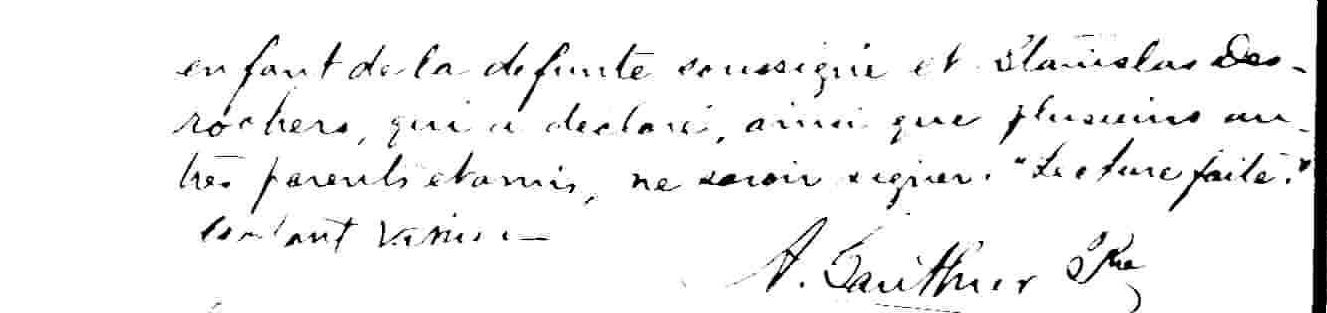 enfant de la defunte soussigné et Stanislas Des-
rochers, qui a déclaré, ainsi que plusieurs au-
tres parents et amis, ne savoir signer. "Lecture faite."
A. Gauthier Ptre